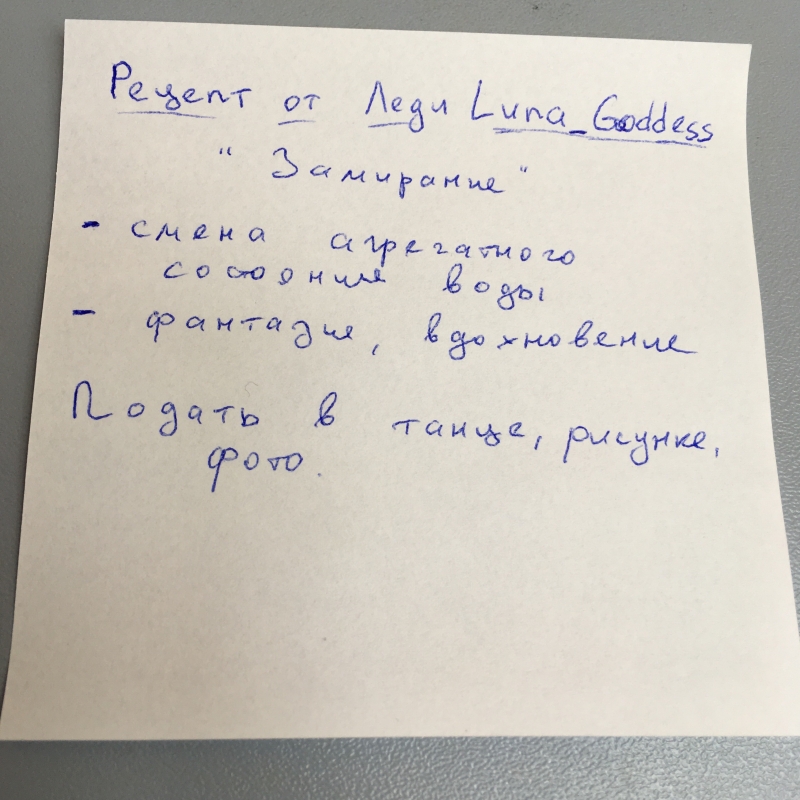 Рецепт от Леди Luna_Goddess
"Замирание"
- смена агрегатного
состояния воды
- фантазия, вдохновение
Подать в танце, рисунке,
фото.